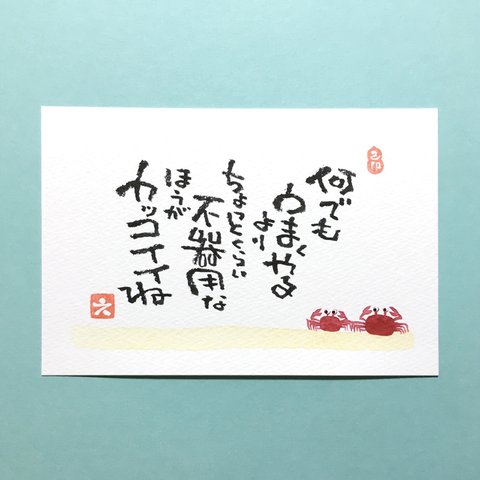 何でも
うまくやる
より
ちょっとくらい
不器用な
ほうが
カッコイイね
六